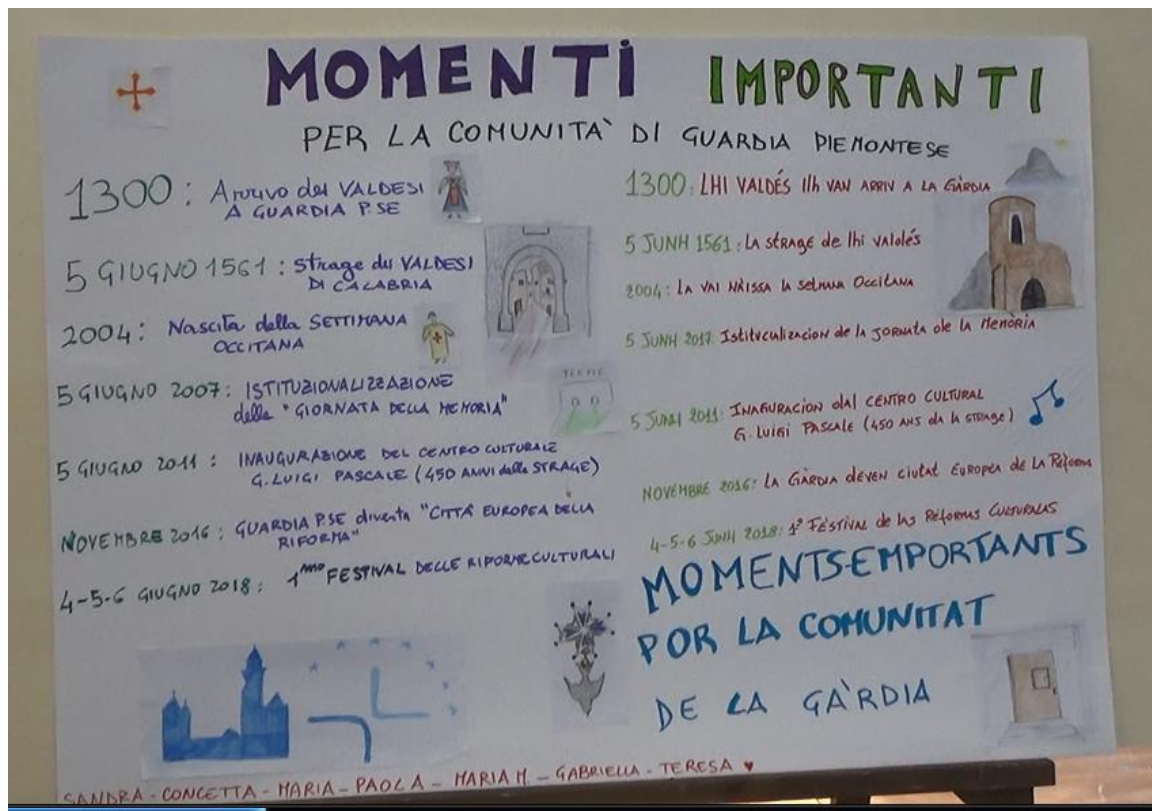 MOMENTI IMPORTANTI
PER LA COMUNITA' DI GUARDIA PIEMONTESE
1300: Arrivo dei VALDESI
A GUARDIA P.SE
5 GIUGNO 1561: strage dei VALDESI
DI CALABRIA
2004: Nascita della SETTIMANA
OCCITANA
5 GIUGNO 2007: ISTITUZIONALIZZAZIONE
della "GIORNATA DELLA MEMORIA"
TERME
5 GIUGNO 2011: INAUGURAZIONE DEL CENTRO CULTURALE
G. LUIGI PASCALE (450 ANNI dalla STRAGE)
NOVEMBRE 2016: GUARDIA P.SE diventa "CITTÀ EUROPEA DELLA
RIFORMA"
4-5-6 GIUGNO 2018: 1mo FESTIVAL DELLE RIFORME CULTURALI
1300: LHI VALDÉS Ilh VAN ARRIV A LA GÀRDIA
5 JUNH 1561: La strage de lhi valdés
2004: LA VAI NÀISSA la setmana Occitana
5 JUNH 2017: Istituculizacion de la JORNATA de la Memòria
5 JUNH 2011: INAGURACION dal CENTRO CULTURAL
G. LUIGI PASCALE (450 ANS da la strage)
NOVEMBRE 2016: LA GÀRDIA deven ciutat Europea de La Reforma
4-5-6 JUNH 2018: 1º FESTIVAL de las Reformas CULTURALAS
MOMENTS EMPORTANTS
POR LA COMUNITAT
DE LA GÀRDIA
SANDRA - CONCETTA - MARIA - PAOLA - MARIA M. - GABRIELLA - TERESA ♥